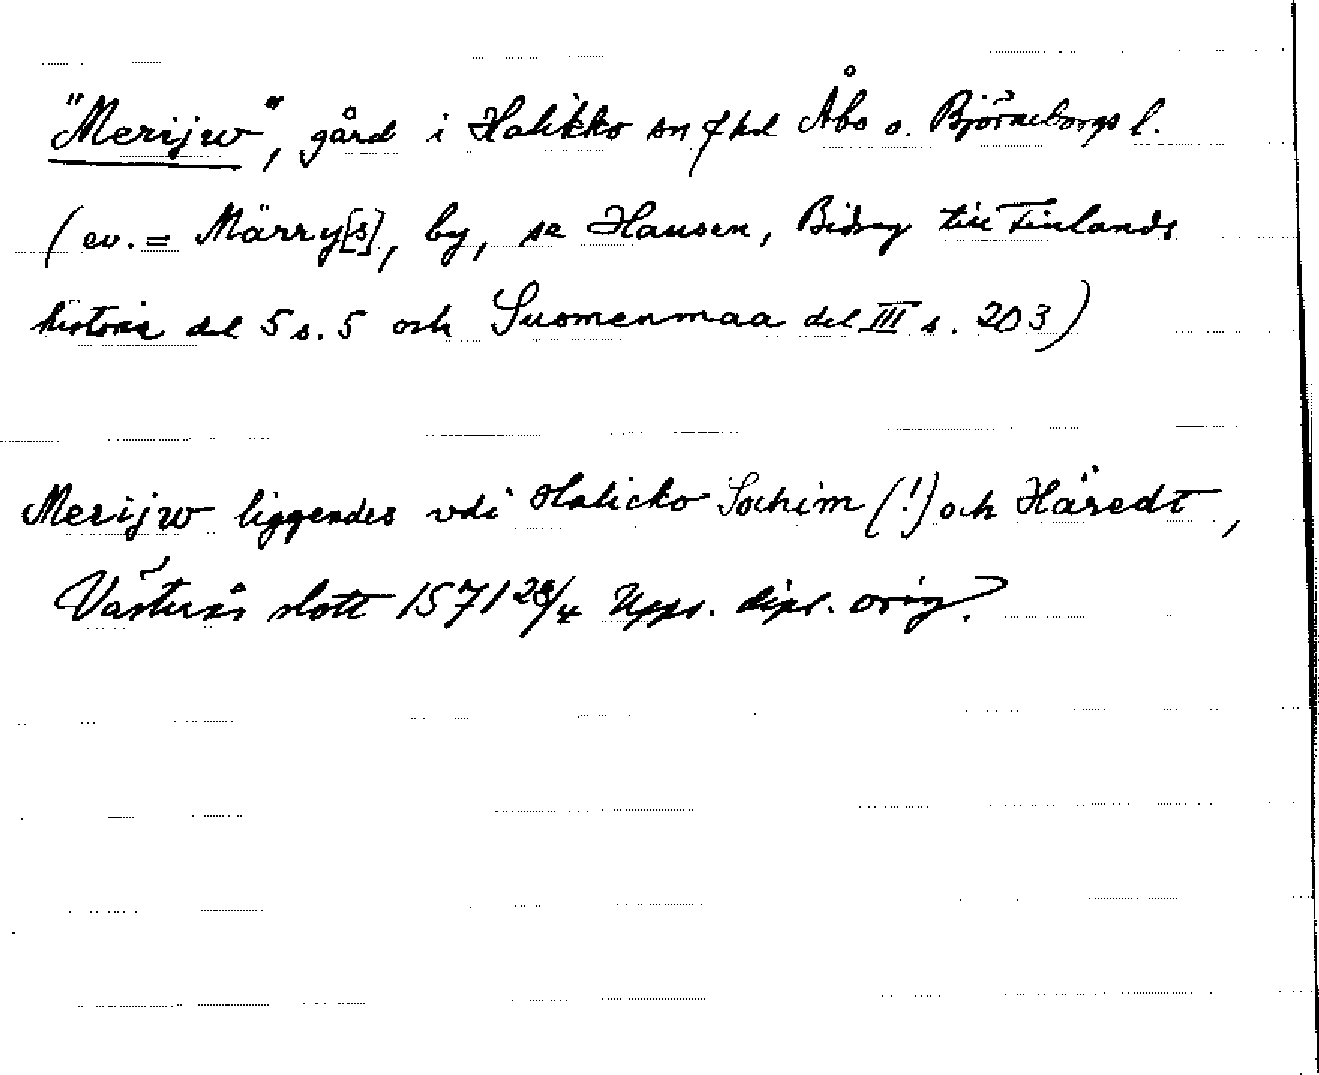 "Merijw", gård i Halikko sn o hd Åbo o. Björneborgs l.
(ev. = Märry[s], by, se Hausen, Bidrag till Finlands
historia del 5 s. 5 och Suomenmaa del III s. 203)
Merijw liggendes vdi Halicko Sochim (!) och Häredt,
Västerås slott 1571 28/4 Upps. dipl. orig.